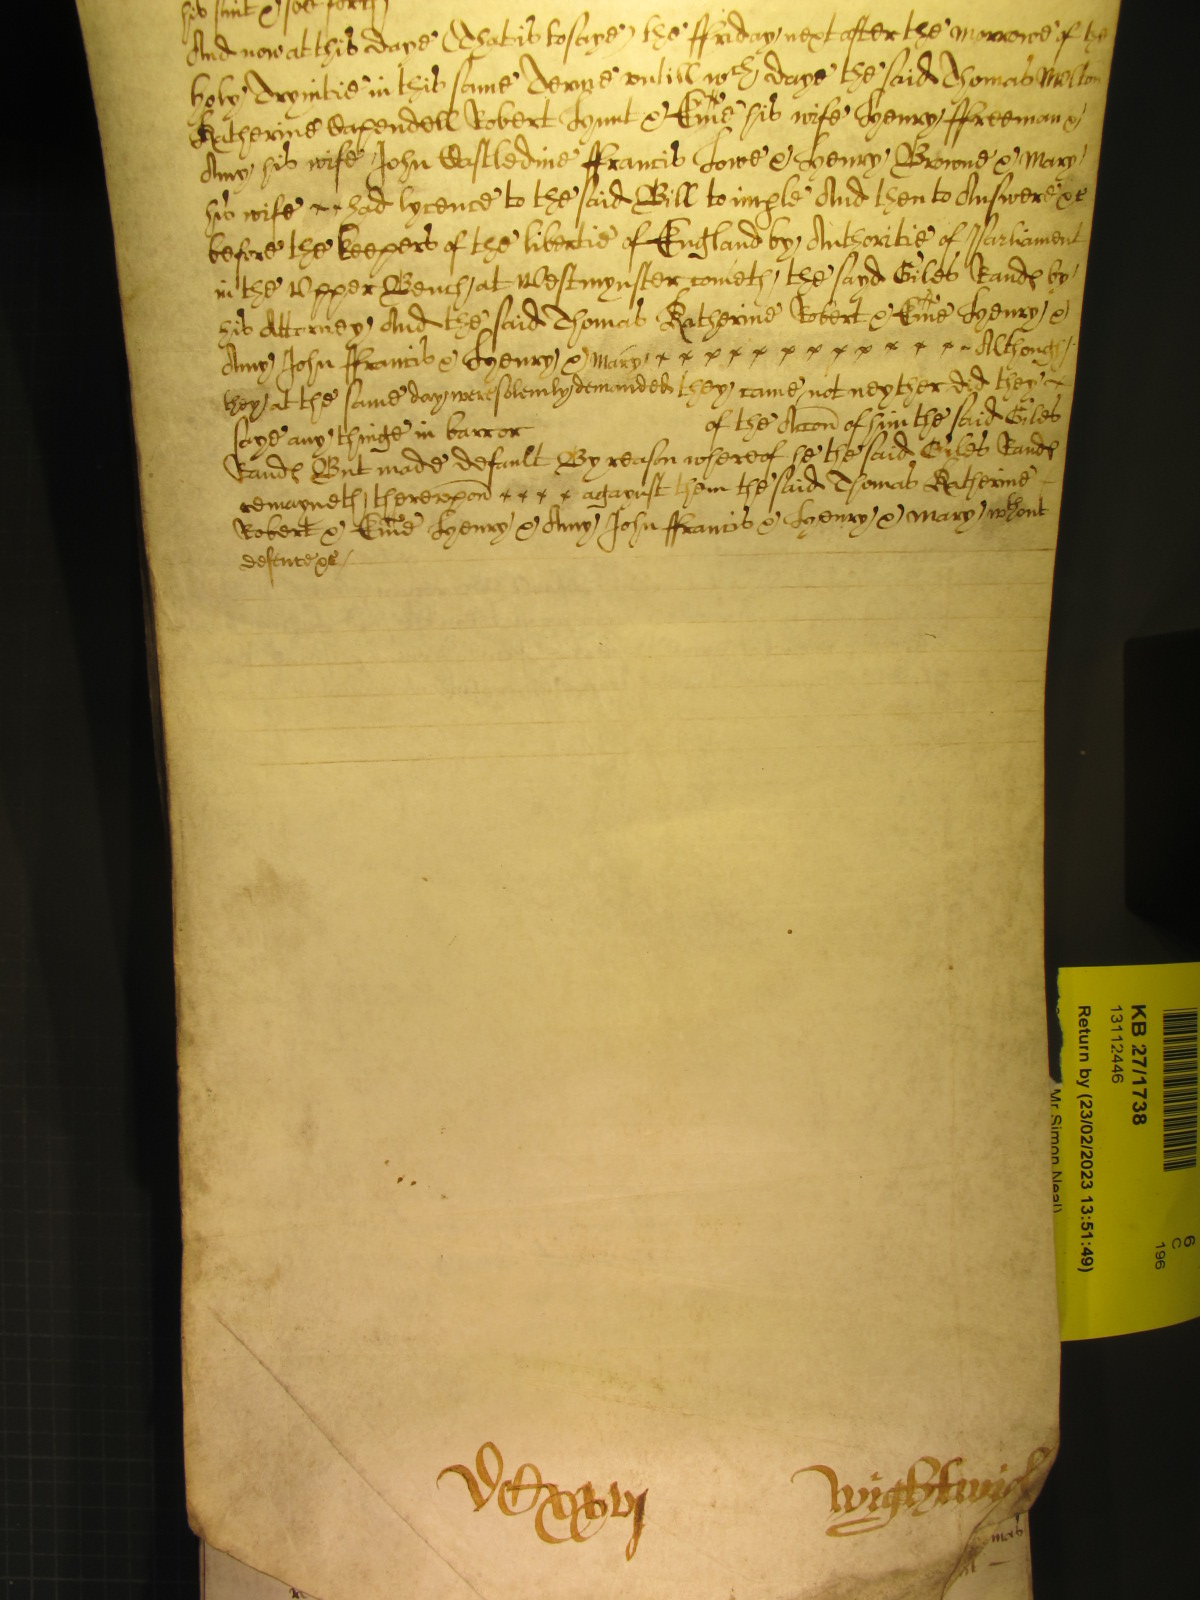 his suit &c sett forth
And now at this daye (That is to saye) the ffriday next after the Morrowe of the
holy Trynitie in this same Terme untill wch daye the said Thomas Melton
Katherine Capendell Robert Hunt & Eme his wife Henry ffreeman &
Amy his wife John Castledine ffrancis Lowe & Henry Browne & Mary
his wife had lycence to the said Bill to imple And then to Answere &c
before the keepers of the libertie of England by Authoritie of Parliament
in the Upper Bench at Westmynster cometh the sayd Giles Rand by
his Attorney And the said Thomas Katherine Robert & Eme Henry &
Amy John ffrancis & Henry & Mary x x x x x x x x x x x x Although
they at the same day were solemly demanded they came not neyther did they
saye any thinge in barr or of the Accon of him the said Giles
Rand But made default By reason whereof he the said Giles Rand
remayneth thereupon x x x x agaynst them the said Thomas Katherine
Robert & Eme Henry & Amy John ffrancis & Henry & Mary wthout
defence &c
VCxxvj Wightwick
mas
KB 27/1738
13112446
Return by (23/02/2023 13:51:49)
Mr Simon Neal)
6
C
196